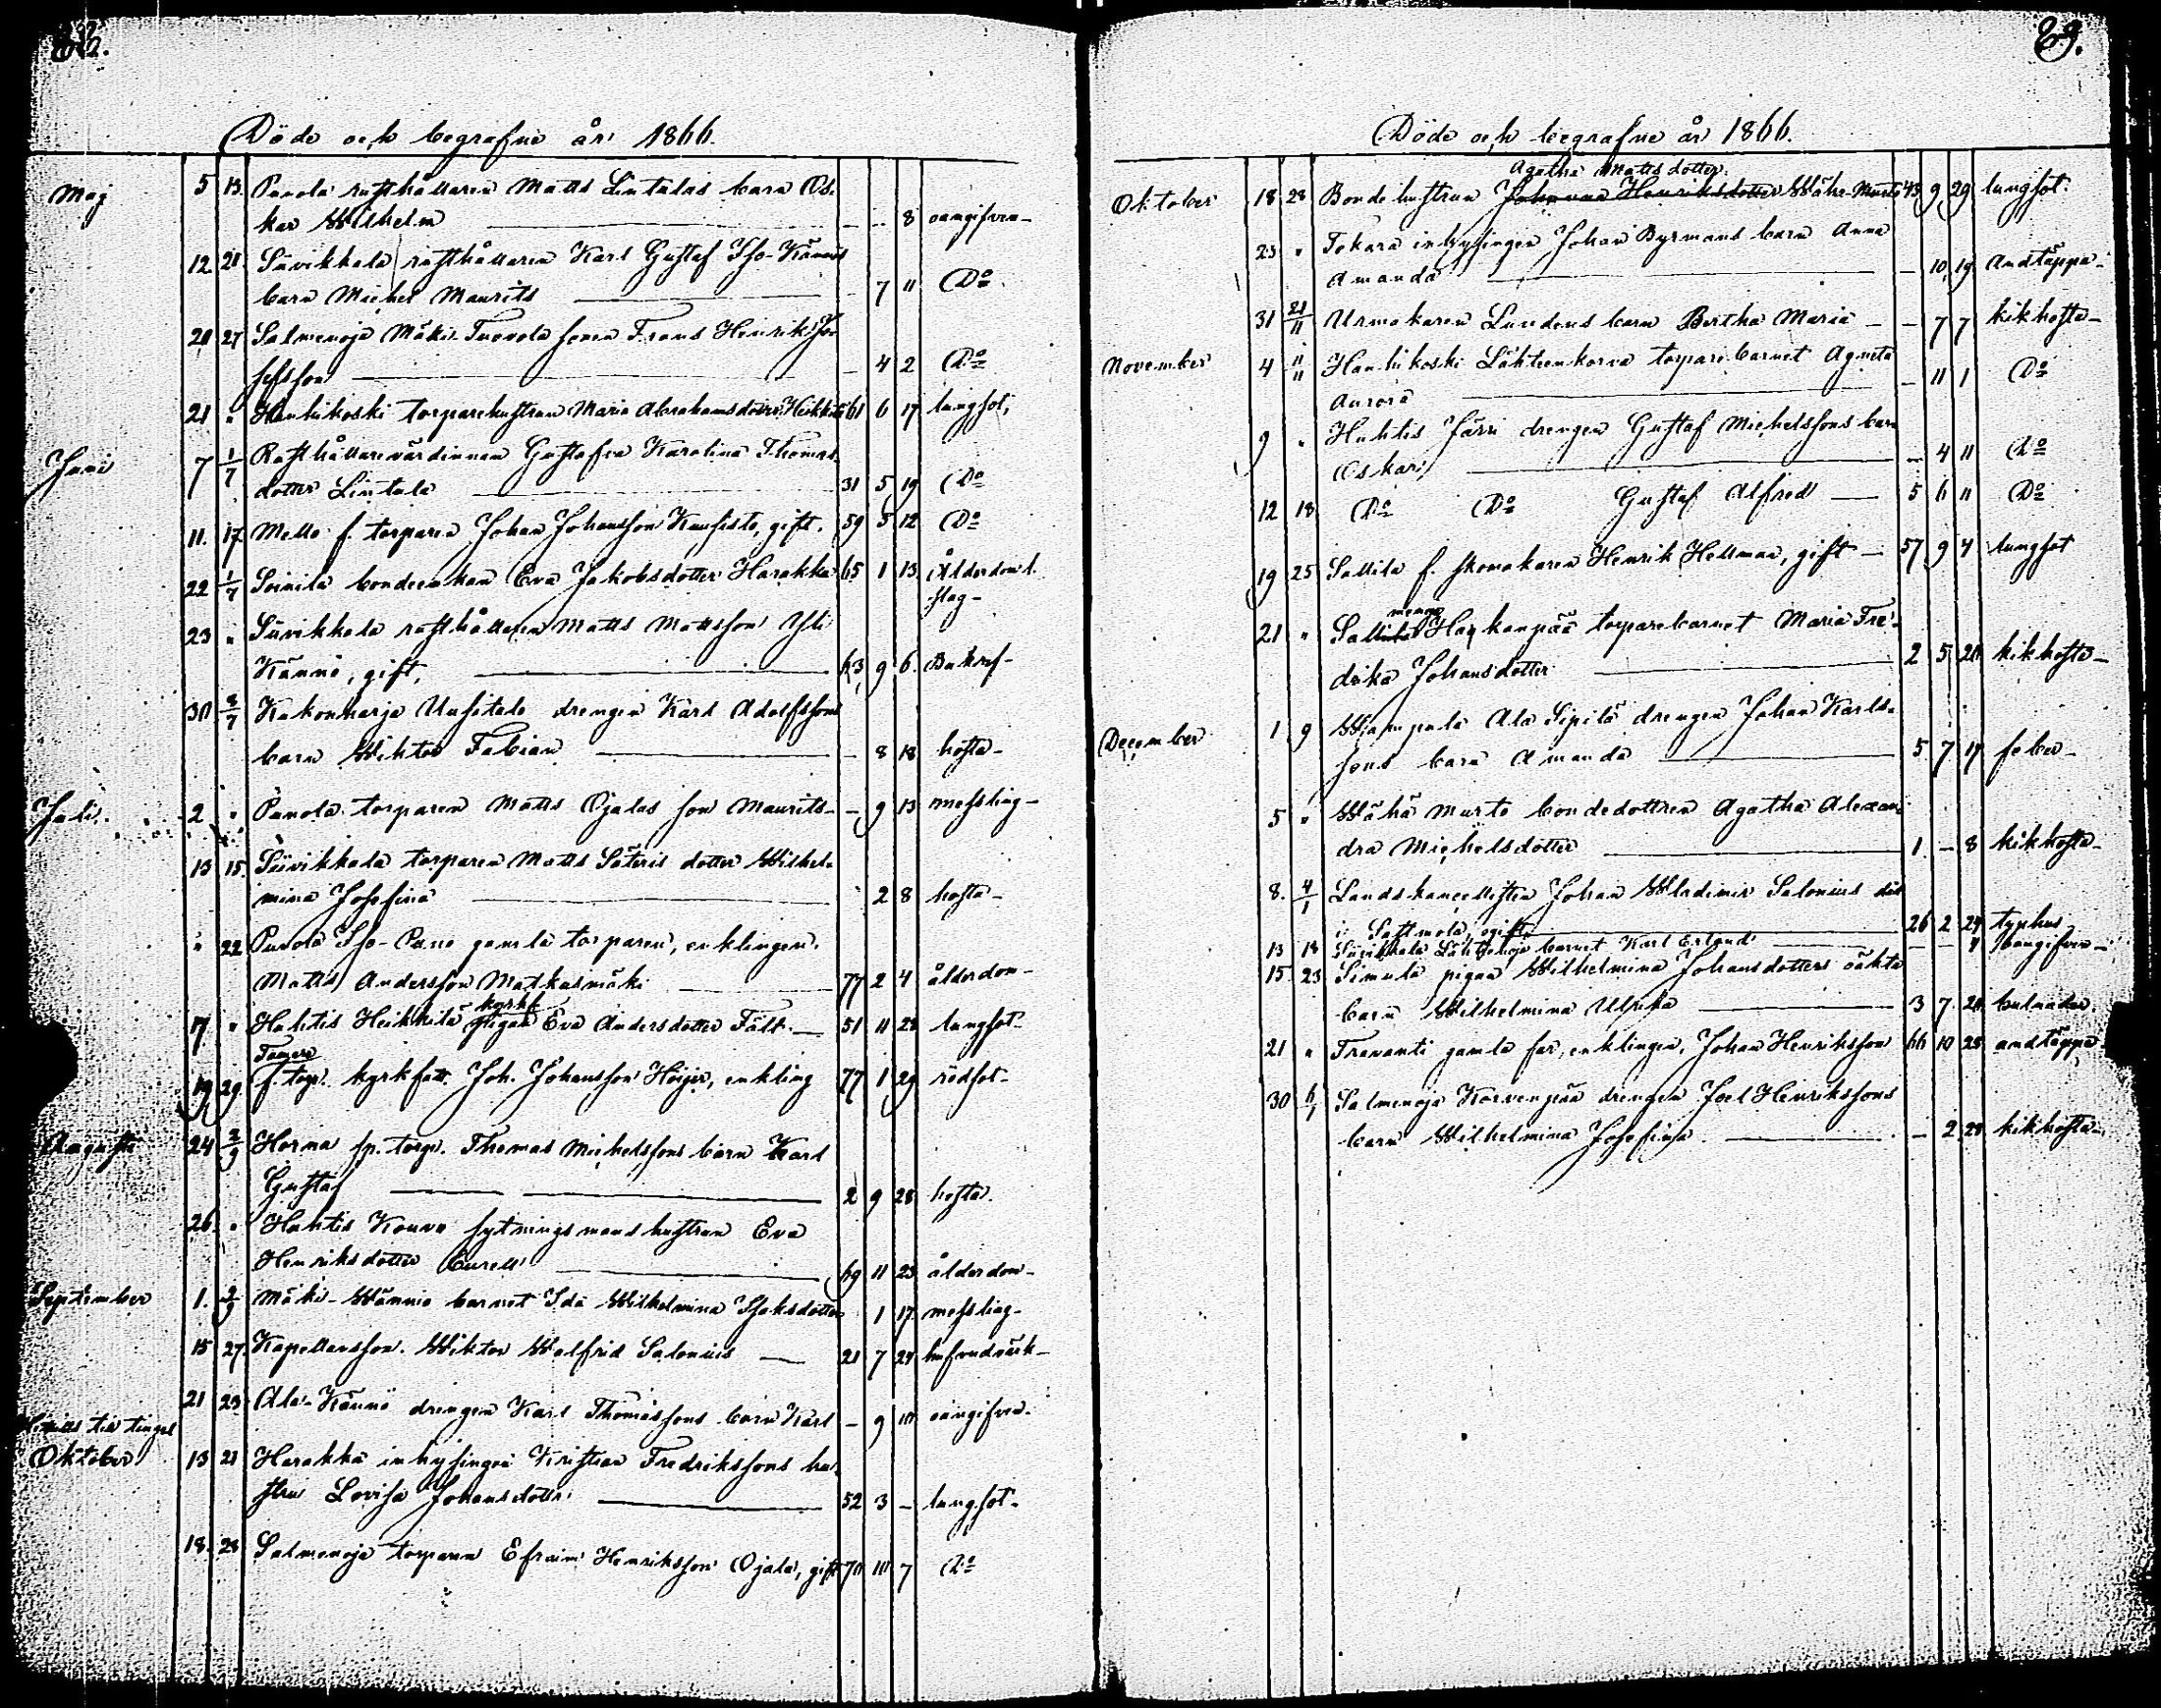 Döde och begrafne år 1866.
Maj 5 13. Panola rusthållaren Matts Lintalas barn Os-
kar Wilhelm — - - 8 oangifven-
12 21. Sürikkala rusthållaren Karl Gustaf Iso-Kännös
barn Michel Maurits — - 7 11 Do
20 27 Salmenoja Mäki-Tuovola sonen Frans Henrik Jo-
sefsson — - 4 2 Do
21 " Hanhikoski torparehustrun Maria Abrahamsdotter Heikkilä 61 6 17 lungsot,
Juni 7 1/7 Rusthållarevärdinnan Gustafva Karolina Thomas-
dotter Lintala — 31 5 19 Do
11. 17. Mello f. torparen Johan Johansson Kaufisto, gift. 59 5 12 Do
22 1/7 Soinila bondeenkan Eva Jakobsdotter Harakka 65 1 13 Ålderdoml.
slag-
23 " Sürikkala rusthållaren Matts Mattsson Yli
Kännö, gift, — 63 9 6.
30 8/7 Kakonharja Uusitalo drengen Karl Adolfssons
barn Wiktor Fabian — - 8 18 hosta-
Juli. 2 " Panola torparen Matts Ojalas son Maurits- - 9 13 messling-
13 15. Sürikkala torparen Matts Säteris dotter Wilhel-
mina Josefina — 2 8 hosta-
" 22 Panola Iso-Pano gamla torparen, enklingen,
Matts Andersson Matkusmäki — 77 2 4 ålderdom-
kyrkf.
17 " Huhtis Heikkilä pigan Eva Andersdotter Fält.— 51 11 28 lungsot-
19 29. f. torp. kyrkfatt. Joh. Johansson Höijer, enkling 77 1 29 rödsot-
Augusti 24 2/9 Horma sp. torp. Thomas Michelssons barn Karl
Gustaf — 2 9 28 hosta.
26 " Huhtis Kouvo sytningsmans hustrun Eva
Henriksdotter — 69 11 23 ålderdom-
September 1. 2/9 Mäki-Wännio barnet Ida Wilhelmina Isaksdotter 1 17. messling-
15 27. Kapellansson. Wiktor Walfrid Salonius — 21 7 24
21 23 Ala-Kännö drengen Karl Thomassons barn Karl - 9 10 oangifven.
till tinget
Oktober 13 21 Harakka inhysingen Kristian Fredrikssons hu-
stru Lovisa Johansdotter — 52 3 - lungsot-
18. 28 Salmenoja torparen Efraim Henriksson Ojala, gift 70 10 7 Do
89.
Döde och begrafne år 1866.
Agatha Mattsdotter
Oktober 18 28 Bondehustrun Johanna Henriksdotter Wähä-Murto 43 9 29 lungsot.
23 " Tokara inhysingen Johan Byrmans barn Anna
Amanda — - 10 19 Andtäppa-
31 21/11 Urmakaren Lundens barn Bertha Maria - - 7 7 kikhosta-
November 4 11/11 Hanhikoski Lähteenkorva torparebarnet Agneta
Aurora — - 11 1 Do
9 " Huhtis Järri drengen Gustaf Michelssons barn
Oskar — - 4 11 Do
12 18 Do Do Gustaf Alfred — 5 6 11 Do
19 25 Sallila f. skomakaren Henrik Hellman, gift — 57 9 4 lungsot
21 " Haukanpää torparebarnet Maria Fre-
drika Johansdotter — 2 5 20 kikhosta-
December 1 9 Wiampala Ala Sipilä drengen Johan Karls-
sons barn Amanda — 5 7 17 feber-
5 " Wähä Murto bondedottren Agatha Alexan-
dra Michelsdotter — 1 - 8 kikhosta-
8. 4/1 Landskancellisten Johan Wladimir Salonius död
i Sattmola, ogift — 26 2 24 typhus
13 18 Sürikkala Lähteenoja barnet Karl Erland — - - 4 oangifven-
15. 23 Simula pigan Wilhelmina Johansdotters oäkta
barn Wilhelmina Ulrika — 3 7 20 bulnader.
21 " Trevanti gamla far, enklingen, Johan Henriksson 66 10 25 andtäppa-
30 6/1 Salmenoja Korvenpää drengen Joel Henrikssons
barn Wilhelmina Josefina — - 2 28 kikhosta-